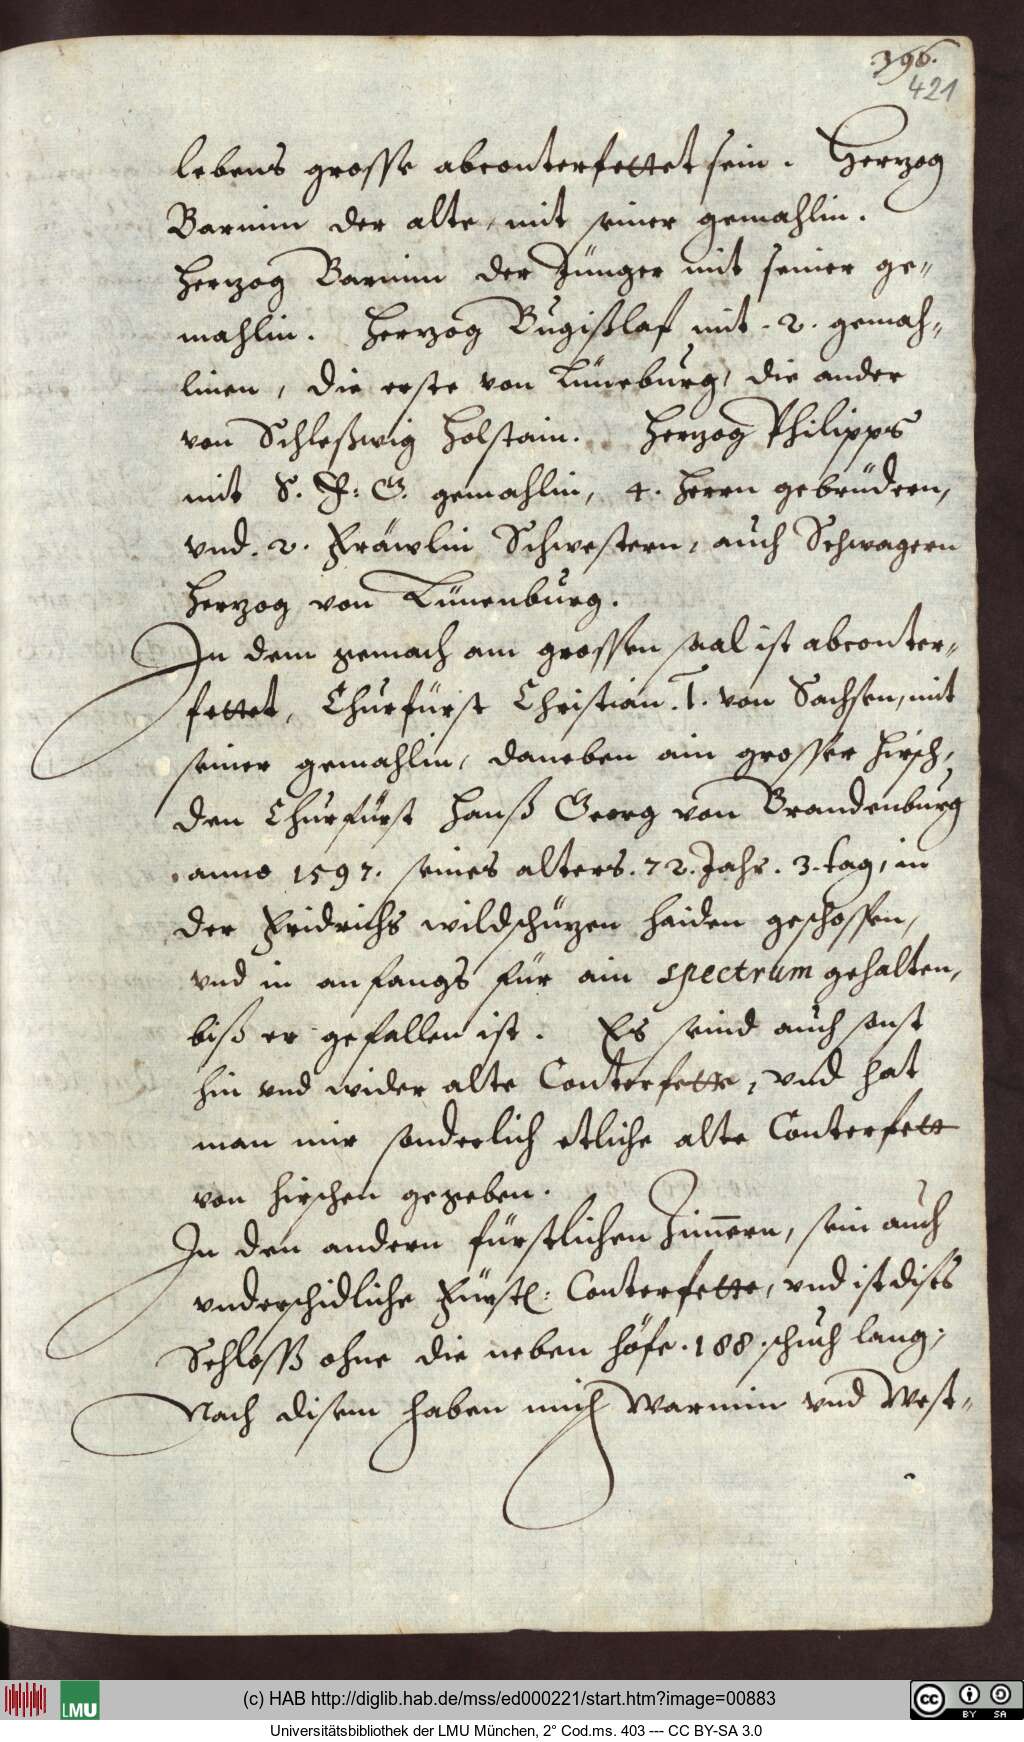 396.
421
lebens grosse abconterfettet sein. Herzog
Barnim der alte, mit seiner gemahlin.
Herzog Barnim der Jünger mit seiner ge-
mahlin. Herzog Bugißlaf mit .2. gemah-
linen, die erste von Lüneburg, die ander
von Schleßwig Holstain. Herzog Philipps
mit S. F: G. gemahlin, 4. herrn gebrüdern,
vnd .2. Fräwlin Schwestern, auch Schwagern
Herzog von Lünenburg.
In dem gemach am grossen saal ist abconter-
fettet, Churfürst Christian .I. von Sachsen, mit
seiner gemahlin, daneben ain grosser hirsch,
den Churfürst Hanß Georg von Brandenburg
anno 1597. seines alters .72. Jahr. 3. tag, in
der Fridrichs wildschüzen haiden geschossen,
vnd in anfangs für ain spectrum gehalten,
biß er gefallen ist. Es seind auch sonst
hin vnd wider alte Conterfette, vnd hat
man mir sonderlich etliche alte Conterfett
von hirschen gegeben.
In den andern fürstlichen Zimmern, sein auch
vnderschidliche Fürstl: Conterfette, vnd ist dises
Schloß ohne die neben höfe .188. schuch lang,
Nach disem haben mich Warmin vnd West-
(c) HAB http://diglib.hab.de/mss/ed000221/start.htm?image=00883
LMU
cc BY SA
Universitätsbibliothek der LMU München, 2° Cod.ms. 403 --- CC BY-SA 3.0